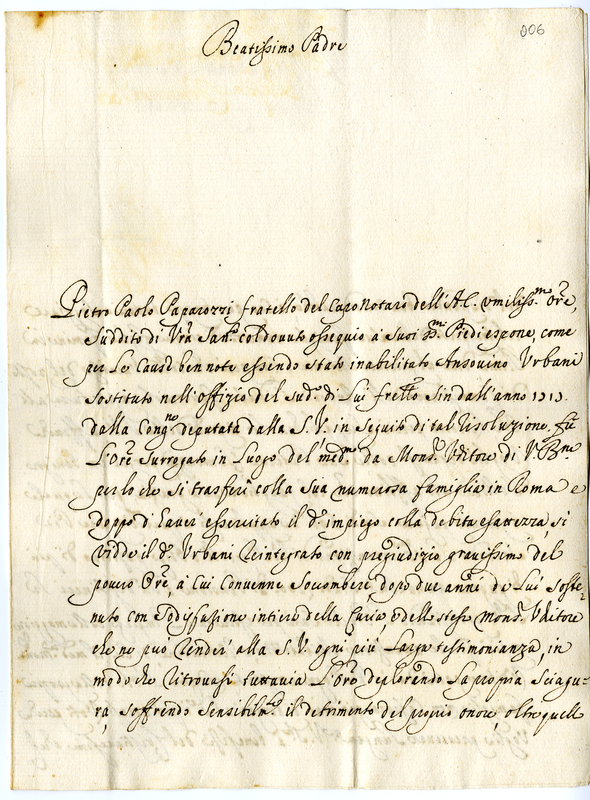 006
Beatissimo Padre
Pietro Paolo Paparozzi fratello del Capo Notaro dell'A.C. umiliss.mo Ore,
suddito di Vra San.tà col dovuto ossequio a' suoi S.mi Piedi espone, come
per le cause ben note essendo stato inabilitato Ansovino Urbani
sostituto nell'offizio del sud.o di lui frello sin dall'anno 1713.
dalla Cong.ne deputata dalla S.V. in seguito di tal risoluzione, fù
l'Ore surrogato in luogo del med.mo da Mons.r Uditore di V.ra B.ne
per lo che si trasferì colla sua numerosa famiglia in Roma e
doppo d'haver' essercitato il d.o impiego colla debita esattezza, si
vidde il d.o Urbani reintegrato con pregiudizio gravissimo del
povero Ore, a cui convenne soccombere, dopo due anni da lui soste-
nuto con sodisfazione intiera della Curia, e dello stesso Mons.r Uditore
che ne può render' alla S.V. ogni più larga testimonianza, in
modo che ritrovasi tuttavia l'Ore deplorando la propria sciagu-
ra, soffrendo sensibilm.te il detrimento del proprio onore, oltre quell